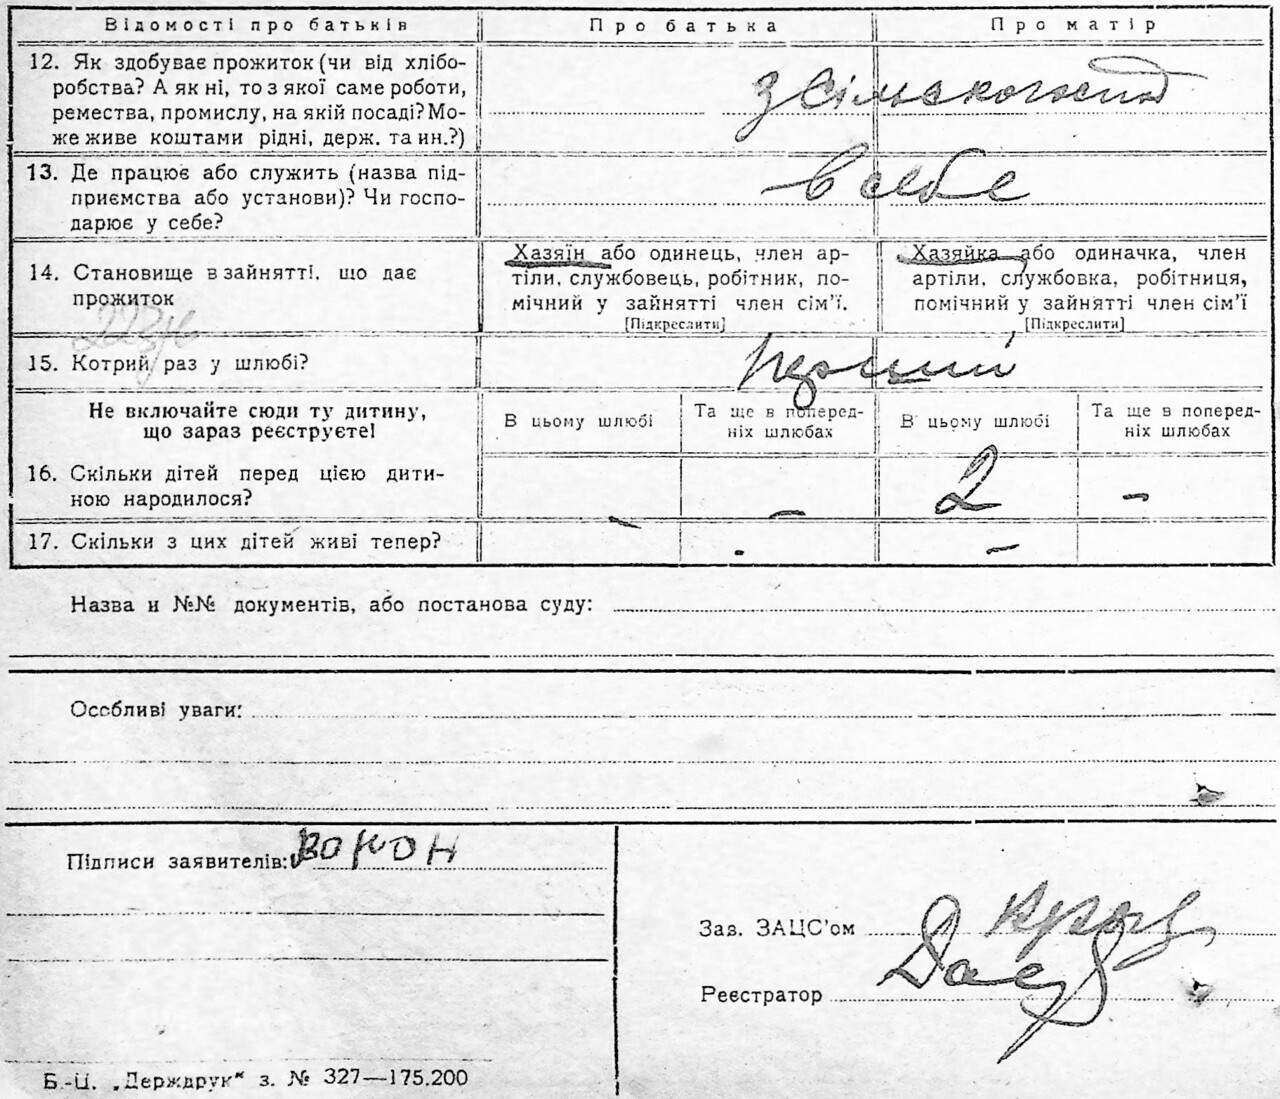 Відомості про батьків Про батька Про матір
12. Як здобуває прожиток (чи від хлібо-
робства? А як ні, то з якої саме роботи,
ремества, промислу, на якій посаді? Мо-
же живе коштами рідні, держ. та ин.?)
з сільськогоспод
13. Де працює або служить (назва під-
приємства або установи)? Чи госпо-
дарює у себе?
в себе
14. Становище в зайнятті, що дає
прожиток
Хазяїн або одинець, член ар-
тіли, службовець, робітник, по-
мічний у зайнятті член сім'ї.
[Підкреслити]
Хазяйка або одиначка, член
артіли, службовка, робітниця,
помічний у зайнятті член сім'ї
[Підкреслити]
15. Котрий раз у шлюбі?
перший
Не включайте сюди ту дитину,
що зараз реєструєте!
В цьому шлюбі
Та ще в поперед-
ніх шлюбах
В цьому шлюбі
Та ще в поперед-
ніх шлюбах
16. Скільки дітей перед цією дити-
ною народилося?
- - 2 -
17. Скільки з цих дітей живі тепер?
-
Назва и №№ документів, або постанова суду:
Особливі уваги:
Підписи заявителів:
Зав. ЗАЦС'ом
Реєстратор
Б.-Ц. „Держдрук" з. № 327—175.200